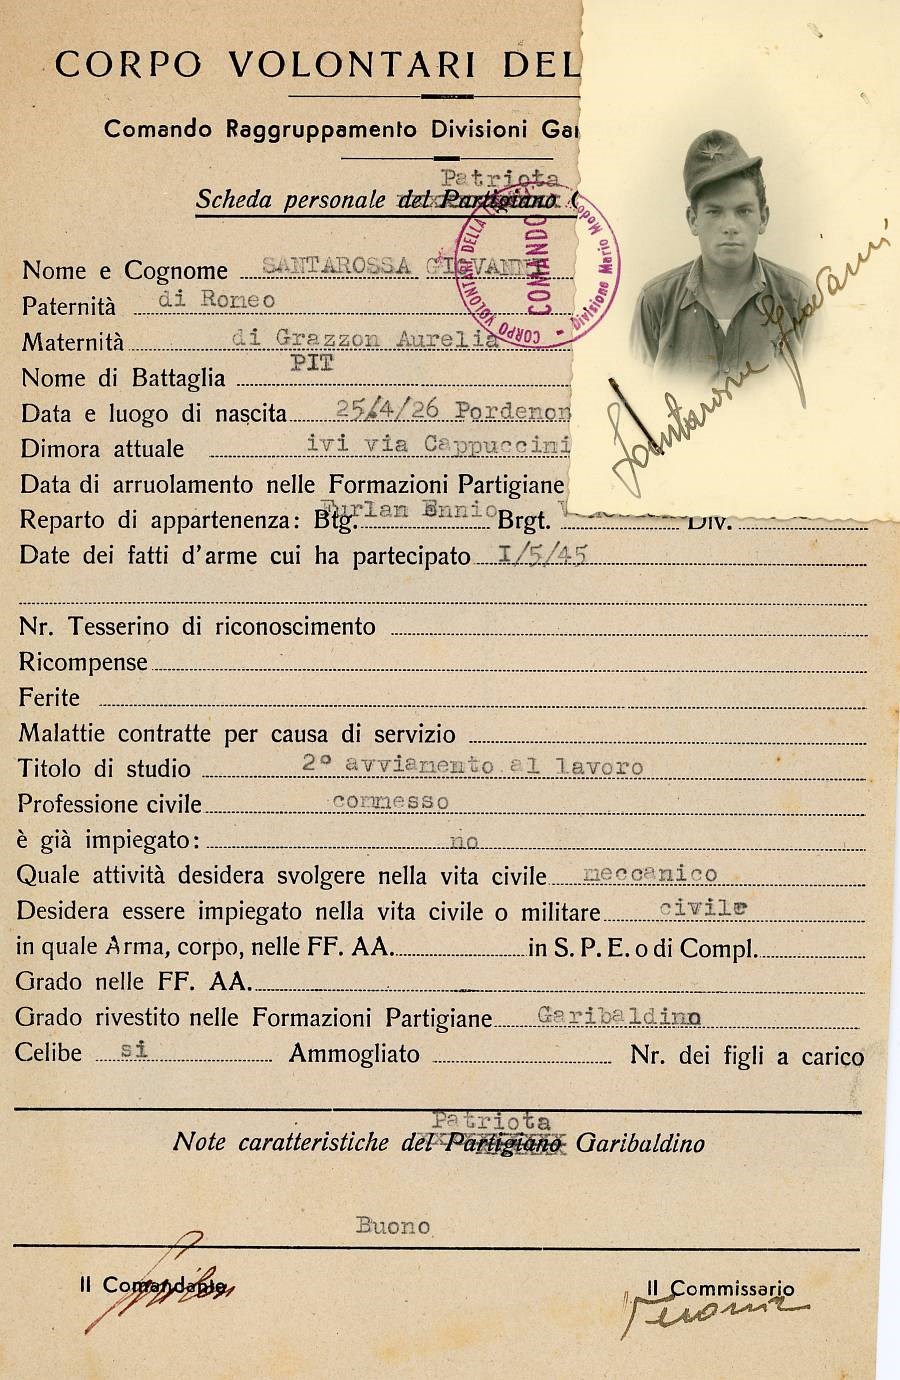 CORPO VOLONTARI DEL
Comando Raggruppamento Divisioni Gar
Patriota
Scheda personale del Partigiano G
Nome e Cognome SANTAROSSA GIOVANNI
Paternità di Romeo
Maternità di Grazzon Aurelia
Nome di Battaglia PIT
Data e luogo di nascita 25/4/26 Pordenon
Dimora attuale ivi via Cappuccini
Data di arruolamento nelle Formazioni Partigiane
Reparto di appartenenza: Btg. Furlan Ennio Brgt. Div.
Date dei fatti d'arme cui ha partecipato I/5/45
Nr. Tesserino di riconoscimento
Ricompense
Ferite
Malattie contratte per causa di servizio
Titolo di studio 2° avviamento al lavoro
Professione civile commesso
è già impiegato: no
Quale attività desidera svolgere nella vita civile meccanico
Desidera essere impiegato nella vita civile o militare civile
in quale Arma, corpo, nelle FF. AA. in S. P. E. o di Compl.
Grado nelle FF. AA.
Grado rivestito nelle Formazioni Partigiane Garibaldino
Celibe si Ammogliato Nr. dei figli a carico
Patriota
Note caratteristiche del Partigiano Garibaldino
Buono
Il Comandante
Il Commissario
CORPO VOLONTARI DELLA
COMANDO
Divisione Mario Modotti
Giovanni